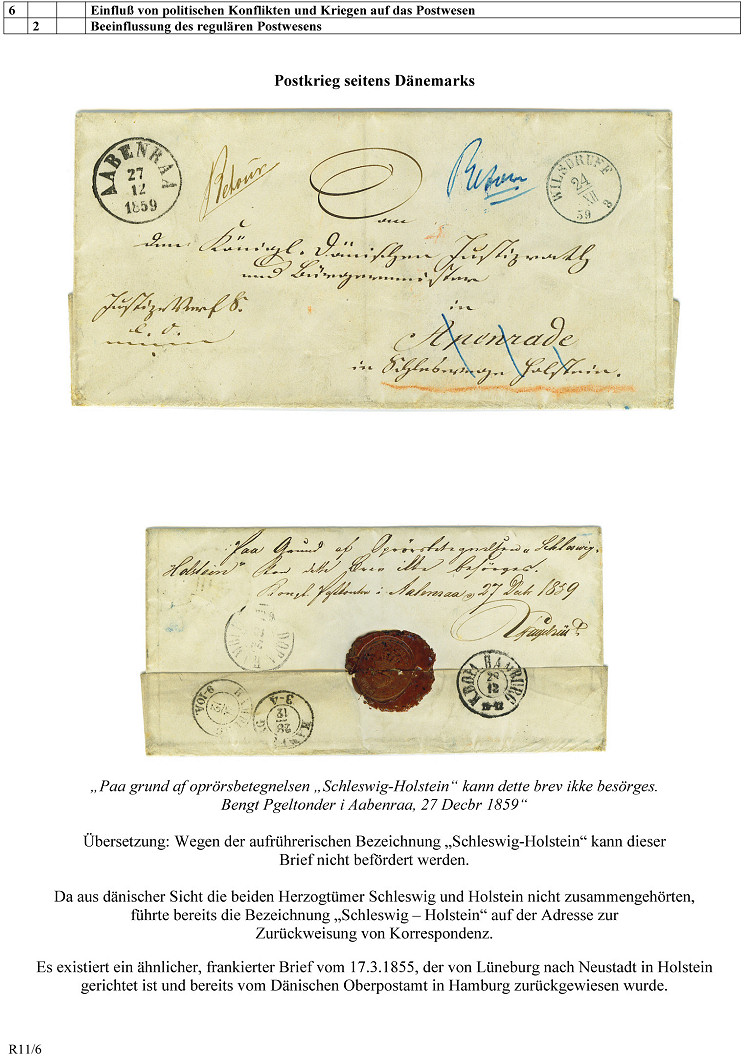 6 Einfluß von politischen Konflikten und Kriegen auf das Postwesen
2 Beeinflussung des regulären Postwesens
Postkrieg seitens Dänemarks
AABENRAA
27
12
1859
Retour
Retour
WILSDRUFF
24
XII
59 8
An
den Königl. Dänischen Justizrath
und Bürgermeister
in
Apenrade
in Schleswig Holstein.
Paa Grund af Oprörsbetegnelsen „Schleswig-
Holstein" kan dette Brev ikke besörges.
i Aabenraa, 27 Decbr 1859
K.D.O.P.A. HAMBURG
28
12
„Paa grund af oprörsbetegnelsen „Schleswig-Holstein“ kann dette brev ikke besörges.
Bengt Pgeltonder i Aabenraa, 27 Decbr 1859“
Übersetzung: Wegen der aufrührerischen Bezeichnung „Schleswig-Holstein“ kann dieser
Brief nicht befördert werden.
Da aus dänischer Sicht die beiden Herzogtümer Schleswig und Holstein nicht zusammengehörten,
führte bereits die Bezeichnung „Schleswig – Holstein“ auf der Adresse zur
Zurückweisung von Korrespondenz.
Es existiert ein ähnlicher, frankierter Brief vom 17.3.1855, der von Lüneburg nach Neustadt in Holstein
gerichtet ist und bereits vom Dänischen Oberpostamt in Hamburg zurückgewiesen wurde.
R11/6